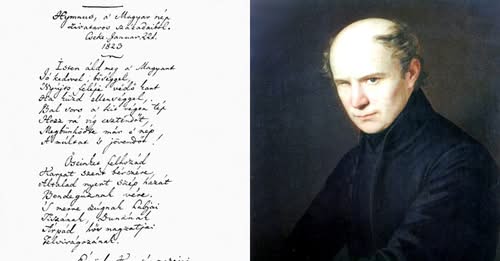 Hymnus, a' Magyar nép
zivataros századaiból.
Cseke Januar. 22d.
1823
Isten áldd meg a' Magyart
Jó kedvvel, bőséggel,
Nyújts feléje védő kart
Ha küzd ellenséggel;
Bal sors a' kit régen tép
Hozz rá víg esztendőt,
Megbünhödte már e' nép
A' multat 's jövendőt!
Őseinket felhozád
Kárpát szent bérczére,
Általad nyert szép hazát
Bendegúznak vére.
'S merre zúgnak habjai
Tiszának, Dunának
Árpád' hős magzatjai
Felvirágozának.